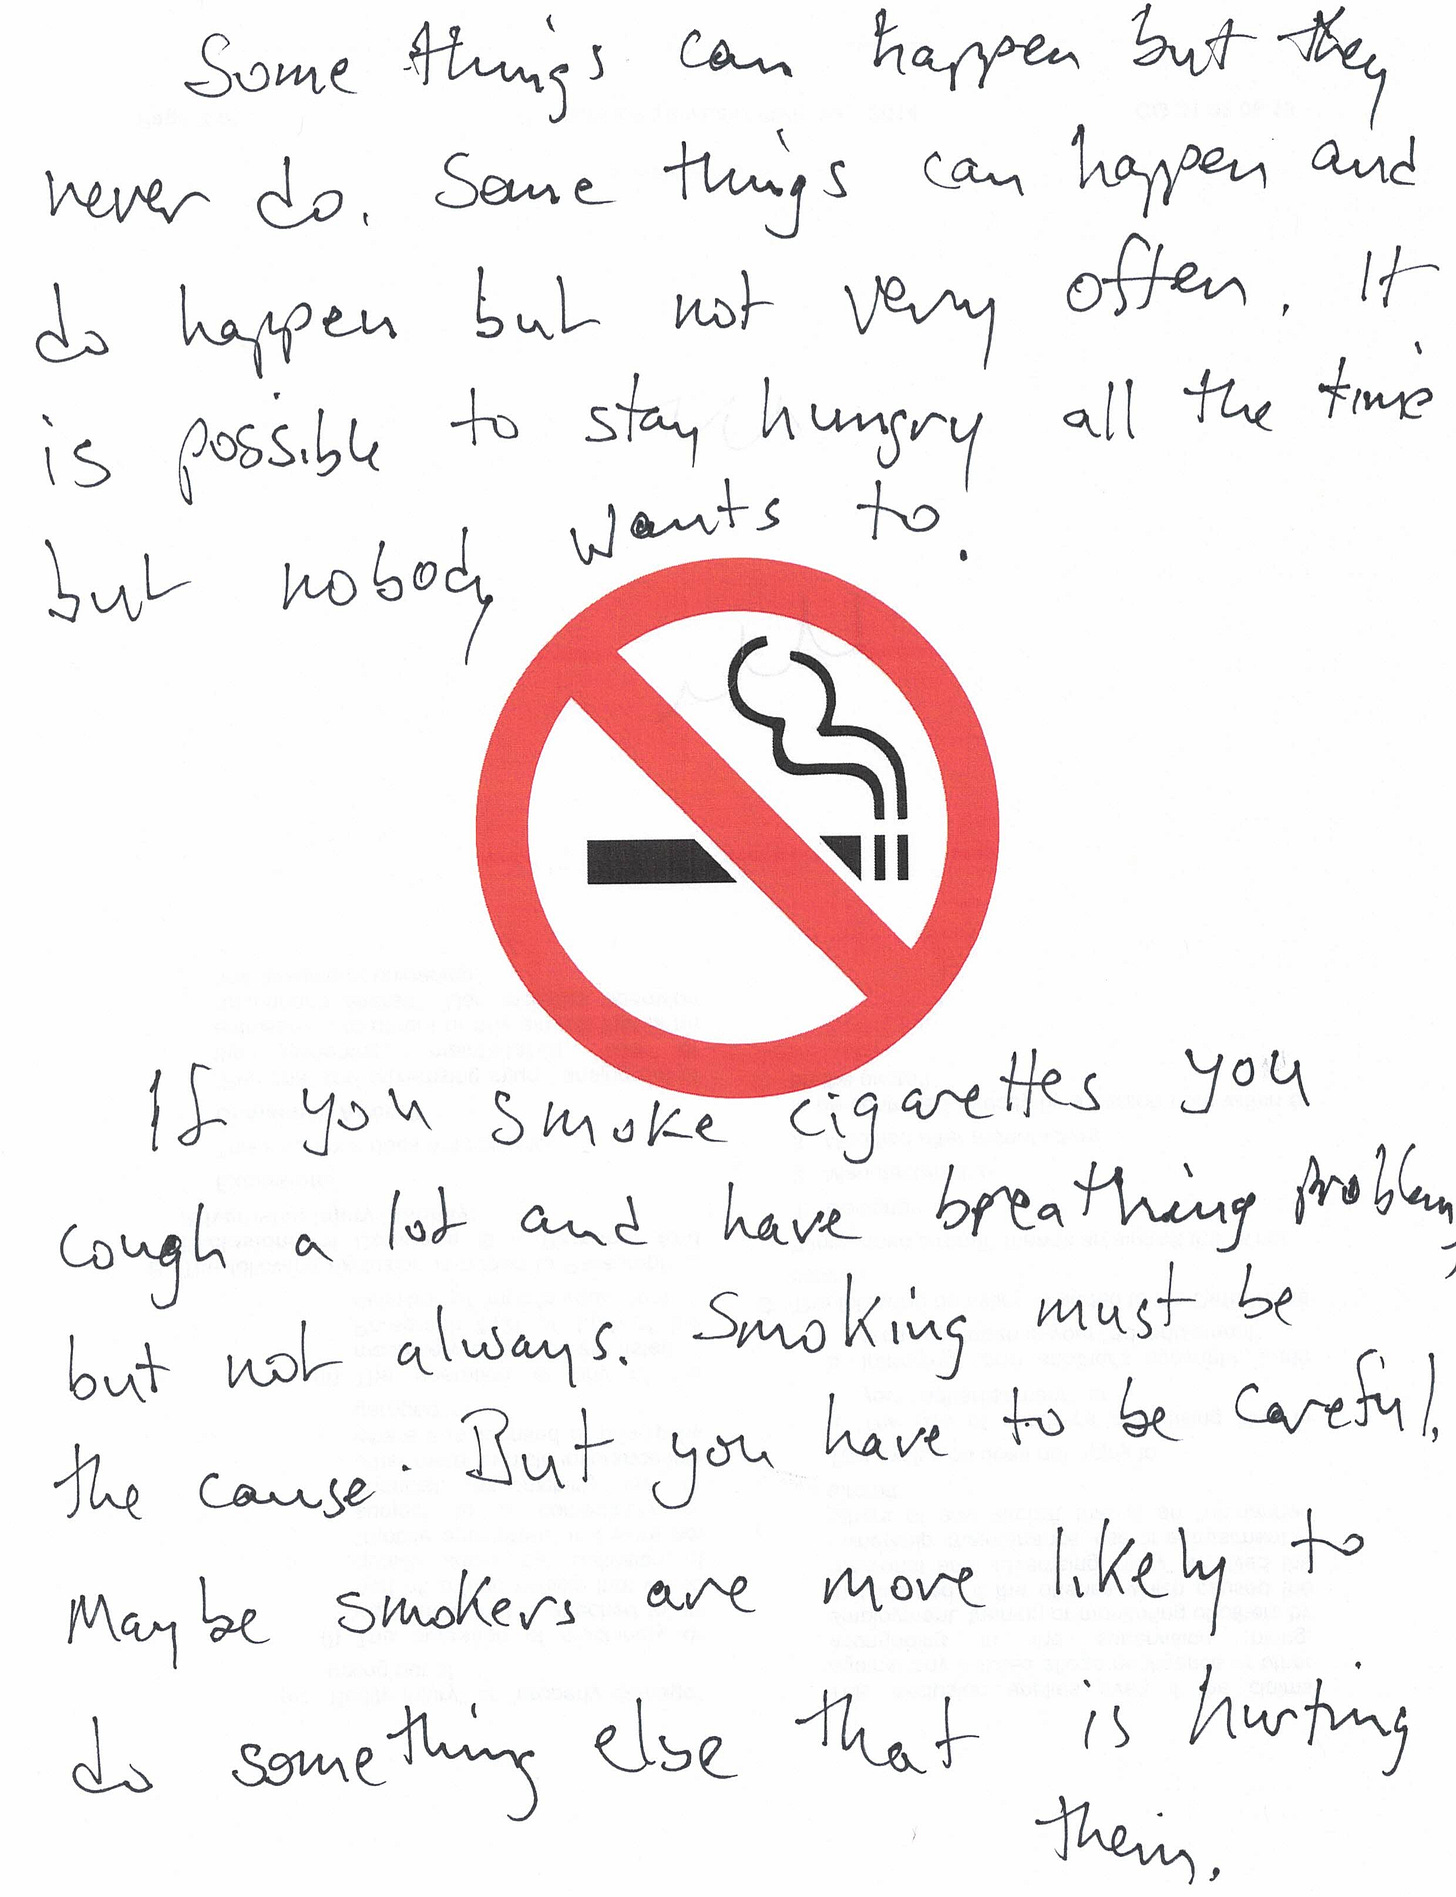 Some things can happen but they
never do. Some things can happen and
do happen but not very often. It
is possible to stay hungry all the time
but nobody wants to.
If you smoke cigarettes you
cough a lot and have breathing problems
but not always. Smoking must be
the cause. But you have to be careful.
Maybe smokers are more likely to
do something else that is hurting
them.